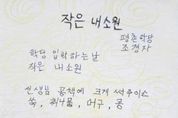 작은 내소원
평촌학당
조경자
학당 입학하는날
작은 내소원
선생님 공책에 크게 써주이소
쑥, 취나물, 머구, 콩